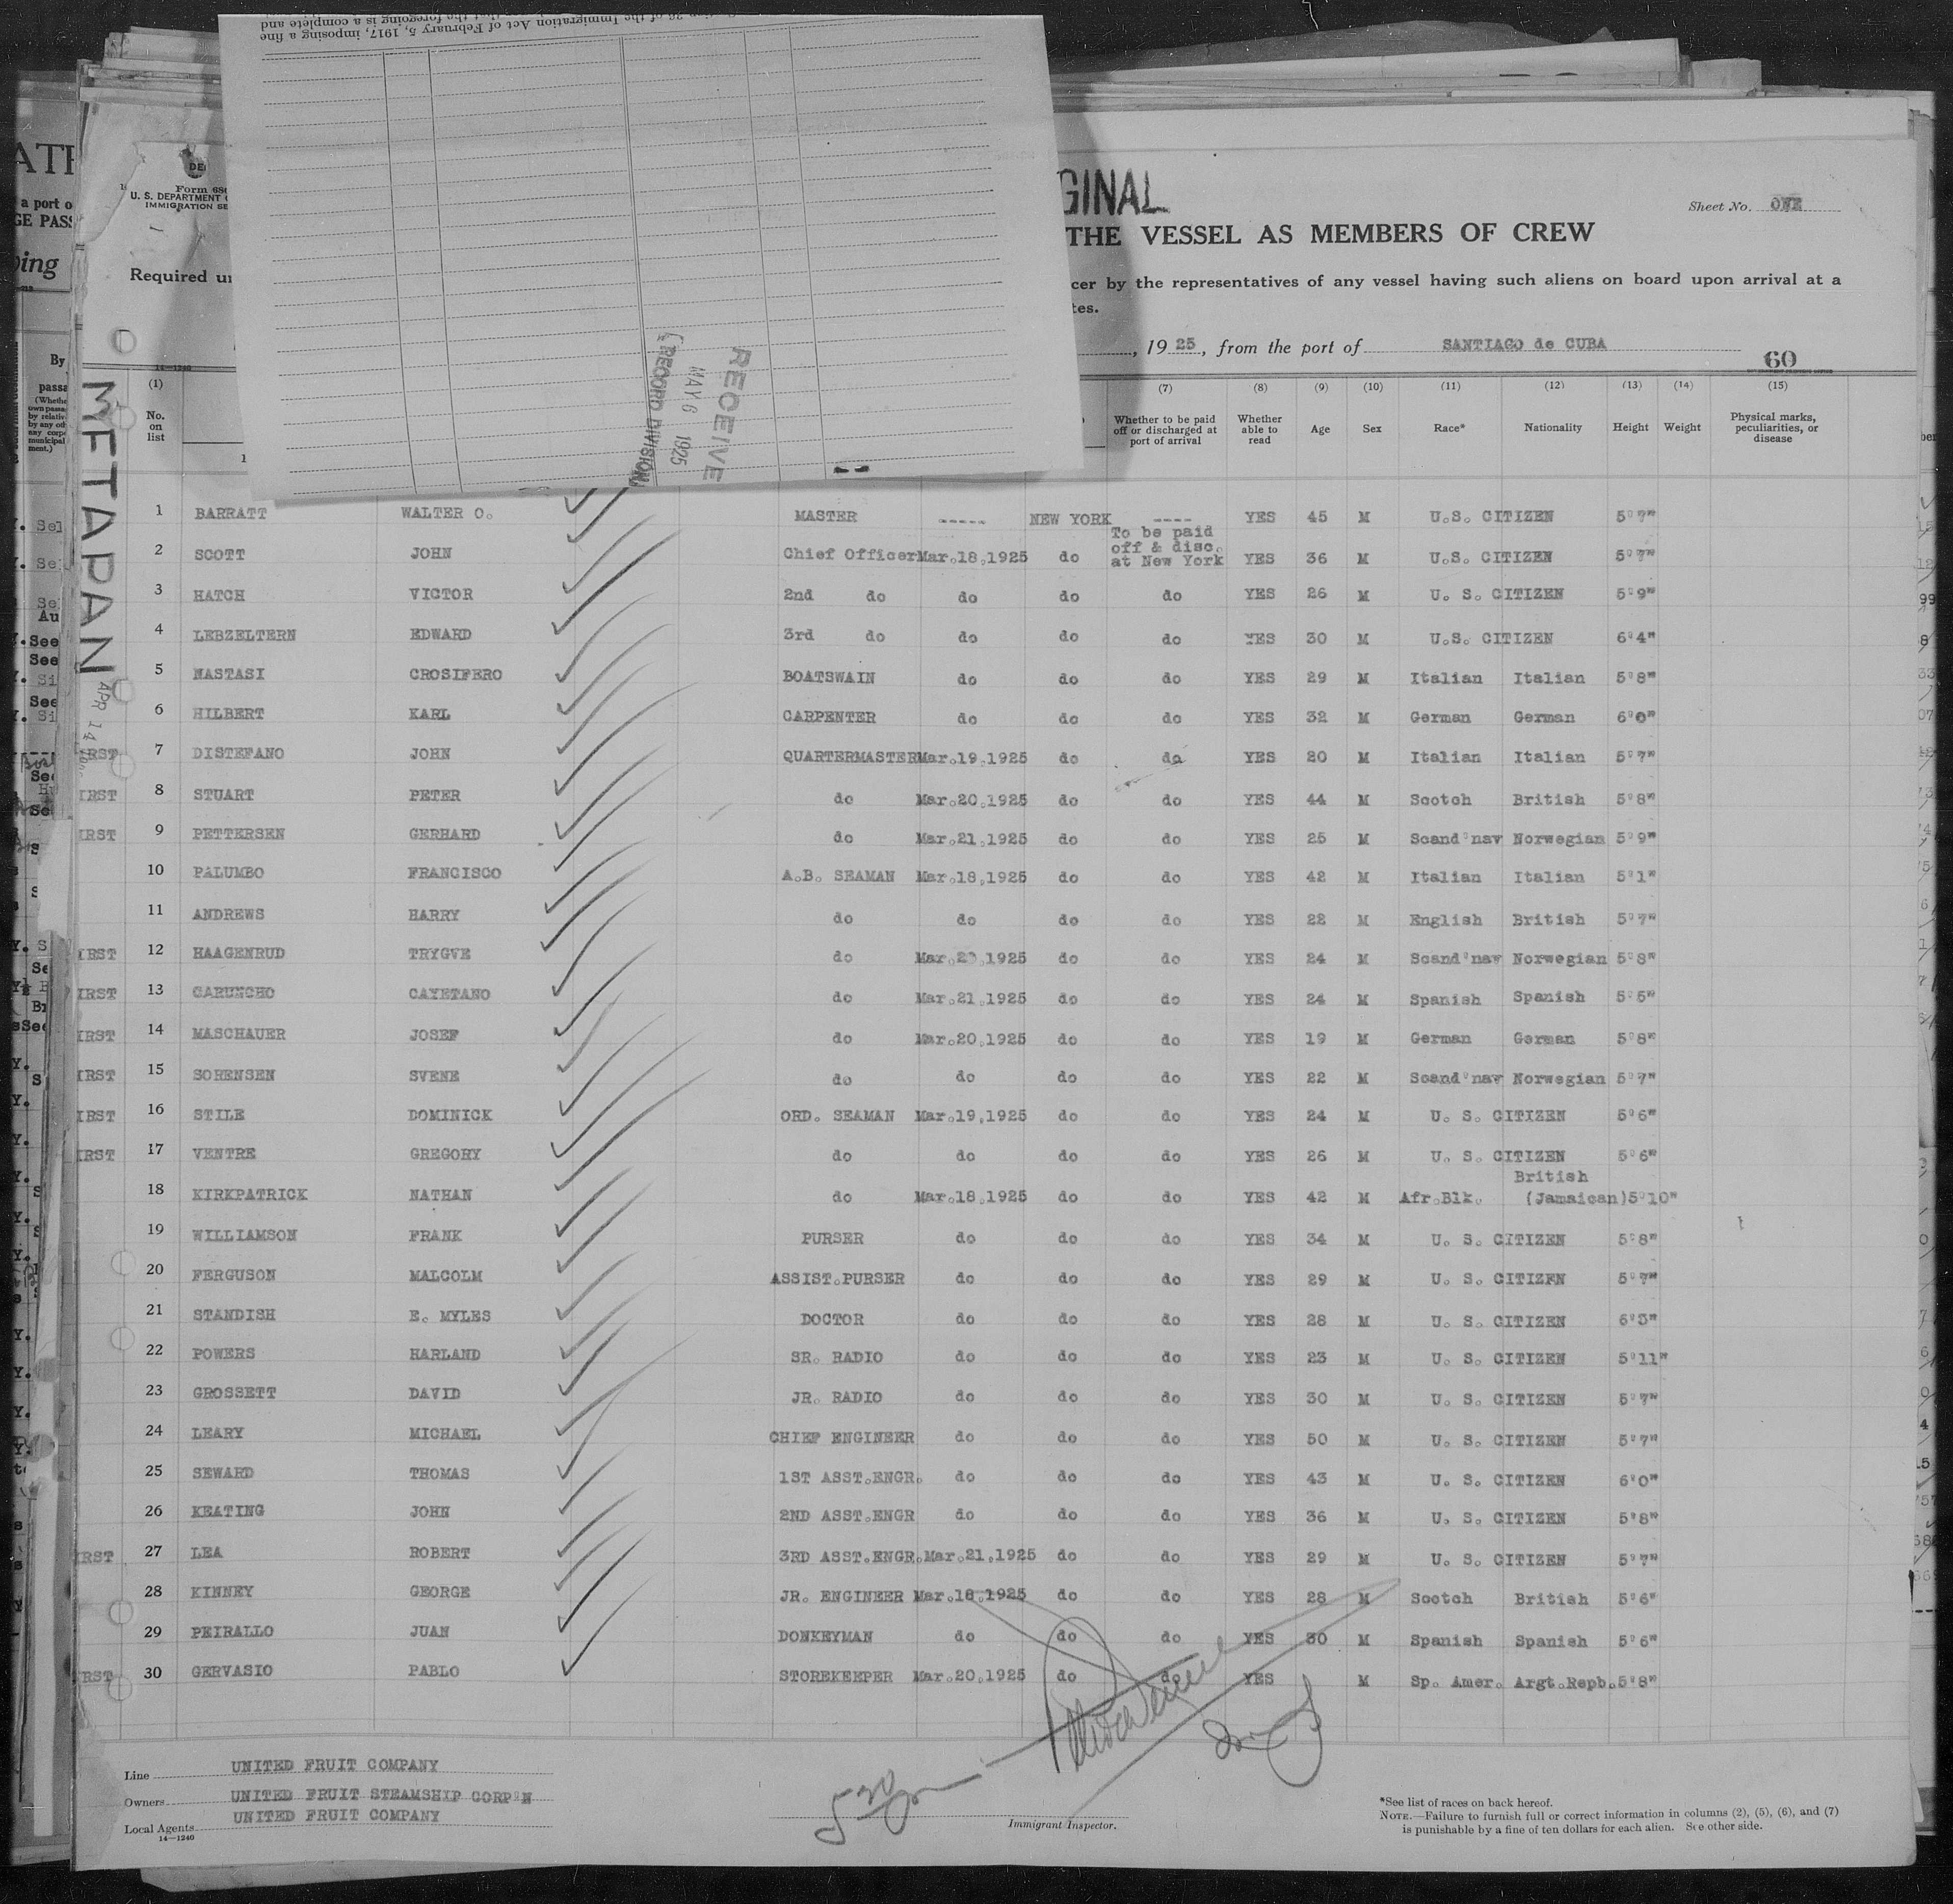 36 of the Immigration Act of February 5, 1917, imposing a fine
that the foregoing is a complete and
RECEIVE
MAY 6 1925
RECORD DIVISION
GINAL
Sheet No. ONE
THE VESSEL AS MEMBERS OF CREW
Form 680
U. S. DEPARTMENT
IMMIGRATION SE
Required un
cer by the representatives of any vessel having such aliens on board upon arrival at a
tes.
, 1925, from the port of SANTIAGO de CUBA
60
14—1240
METAPAN
APR 14
(1) (7) (8) (9) (10) (11) (12) (13) (14) (15)
No. on list Whether to be paid off or discharged at port of arrival Whether able to read Age Sex Race* Nationality Height Weight Physical marks, peculiarities, or disease
1 BARRATT WALTER O. MASTER ----- NEW YORK ---- YES 45 M U.S. CITIZEN 5'7"
2 SCOTT JOHN Chief Officer Mar.18,1925 do To be paid off & disc. at New York YES 36 M U.S. CITIZEN 5'7"
3 HATCH VICTOR 2nd do do do do YES 26 M U. S. CITIZEN 5'9"
4 LEBZELTERN EDWARD 3rd do do do do YES 30 M U.S. CITIZEN 6'4"
5 NASTASI CROSIFERO BOATSWAIN do do do YES 29 M Italian Italian 5'8"
6 HILBERT KARL CARPENTER do do do YES 32 M German German 6'0"
IRST 7 DISTEFANO JOHN QUARTERMASTER Mar.19,1925 do do YES 20 M Italian Italian 5'7"
IRST 8 STUART PETER do Mar.20,1925 do do YES 44 M Scotch British 5'8"
IRST 9 PETTERSEN GERHARD do Mar.21,1925 do do YES 25 M Scand'nav Norwegian 5'9"
10 PALUMBO FRANCISCO A.B. SEAMAN Mar.18,1925 do do YES 42 M Italian Italian 5'1"
11 ANDREWS HARRY do do do do YES 22 M English British 5'7"
IRST 12 HAAGENRUD TRYGVE do Mar. 1925 do do YES 24 M Scand'nav Norwegian 5'8"
IRST 13 CARUNCHO CAYETANO do Mar.21,1925 do do YES 24 M Spanish Spanish 5'5"
IRST 14 MASCHAUER JOSEF do Mar.20,1925 do do YES 19 M German German 5'8"
IRST 15 SORENSEN SVENE do do do do YES 22 M Scand'nav Norwegian 5'7"
IRST 16 STILE DOMINICK ORD. SEAMAN Mar.19,1925 do do YES 24 M U. S. CITIZEN 5'6"
IRST 17 VENTRE GREGORY do do do do YES 26 M U. S. CITIZEN 5'6"
18 KIRKPATRICK NATHAN do Mar.18,1925 do do YES 42 M Afr.Blk. British (Jamaican) 5'10"
19 WILLIAMSON FRANK PURSER do do do YES 34 M U. S. CITIZEN 5'8"
20 FERGUSON MALCOLM ASSIST.PURSER do do do YES 29 M U. S. CITIZEN 5'7"
21 STANDISH E. MYLES DOCTOR do do do YES 28 M U. S. CITIZEN 6'3"
22 POWERS HARLAND SR. RADIO do do do YES 23 M U. S. CITIZEN 5'11"
23 GROSSETT DAVID JR. RADIO do do do YES 30 M U. S. CITIZEN 5'7"
24 LEARY MICHAEL CHIEF ENGINEER do do do YES 50 M U. S. CITIZEN 5'7"
25 SEWARD THOMAS 1ST ASST.ENGR. do do do YES 43 M U. S. CITIZEN 6'0"
26 KEATING JOHN 2ND ASST.ENGR do do do YES 36 M U. S. CITIZEN 5'8"
IRST 27 LEA ROBERT 3RD ASST.ENGR. Mar.21,1925 do do YES 29 M U. S. CITIZEN 5'7"
28 KINNEY GEORGE JR. ENGINEER Mar.18,1925 do do YES 28 M Scotch British 5'6"
29 PEIRALLO JUAN DONKEYMAN do do do YES 30 M Spanish Spanish 5'6"
RST 30 GERVASIO PABLO STOREKEEPER Mar.20,1925 do do YES M Sp. Amer. Argt.Repb. 5'8"
Line UNITED FRUIT COMPANY
Owners UNITED FRUIT STEAMSHIP CORP'N
Local Agents UNITED FRUIT COMPANY
14—1240
Immigrant Inspector.
*See list of races on back hereof.
NOTE.—Failure to furnish full or correct information in columns (2), (5), (6), and (7)
is punishable by a fine of ten dollars for each alien. See other side.